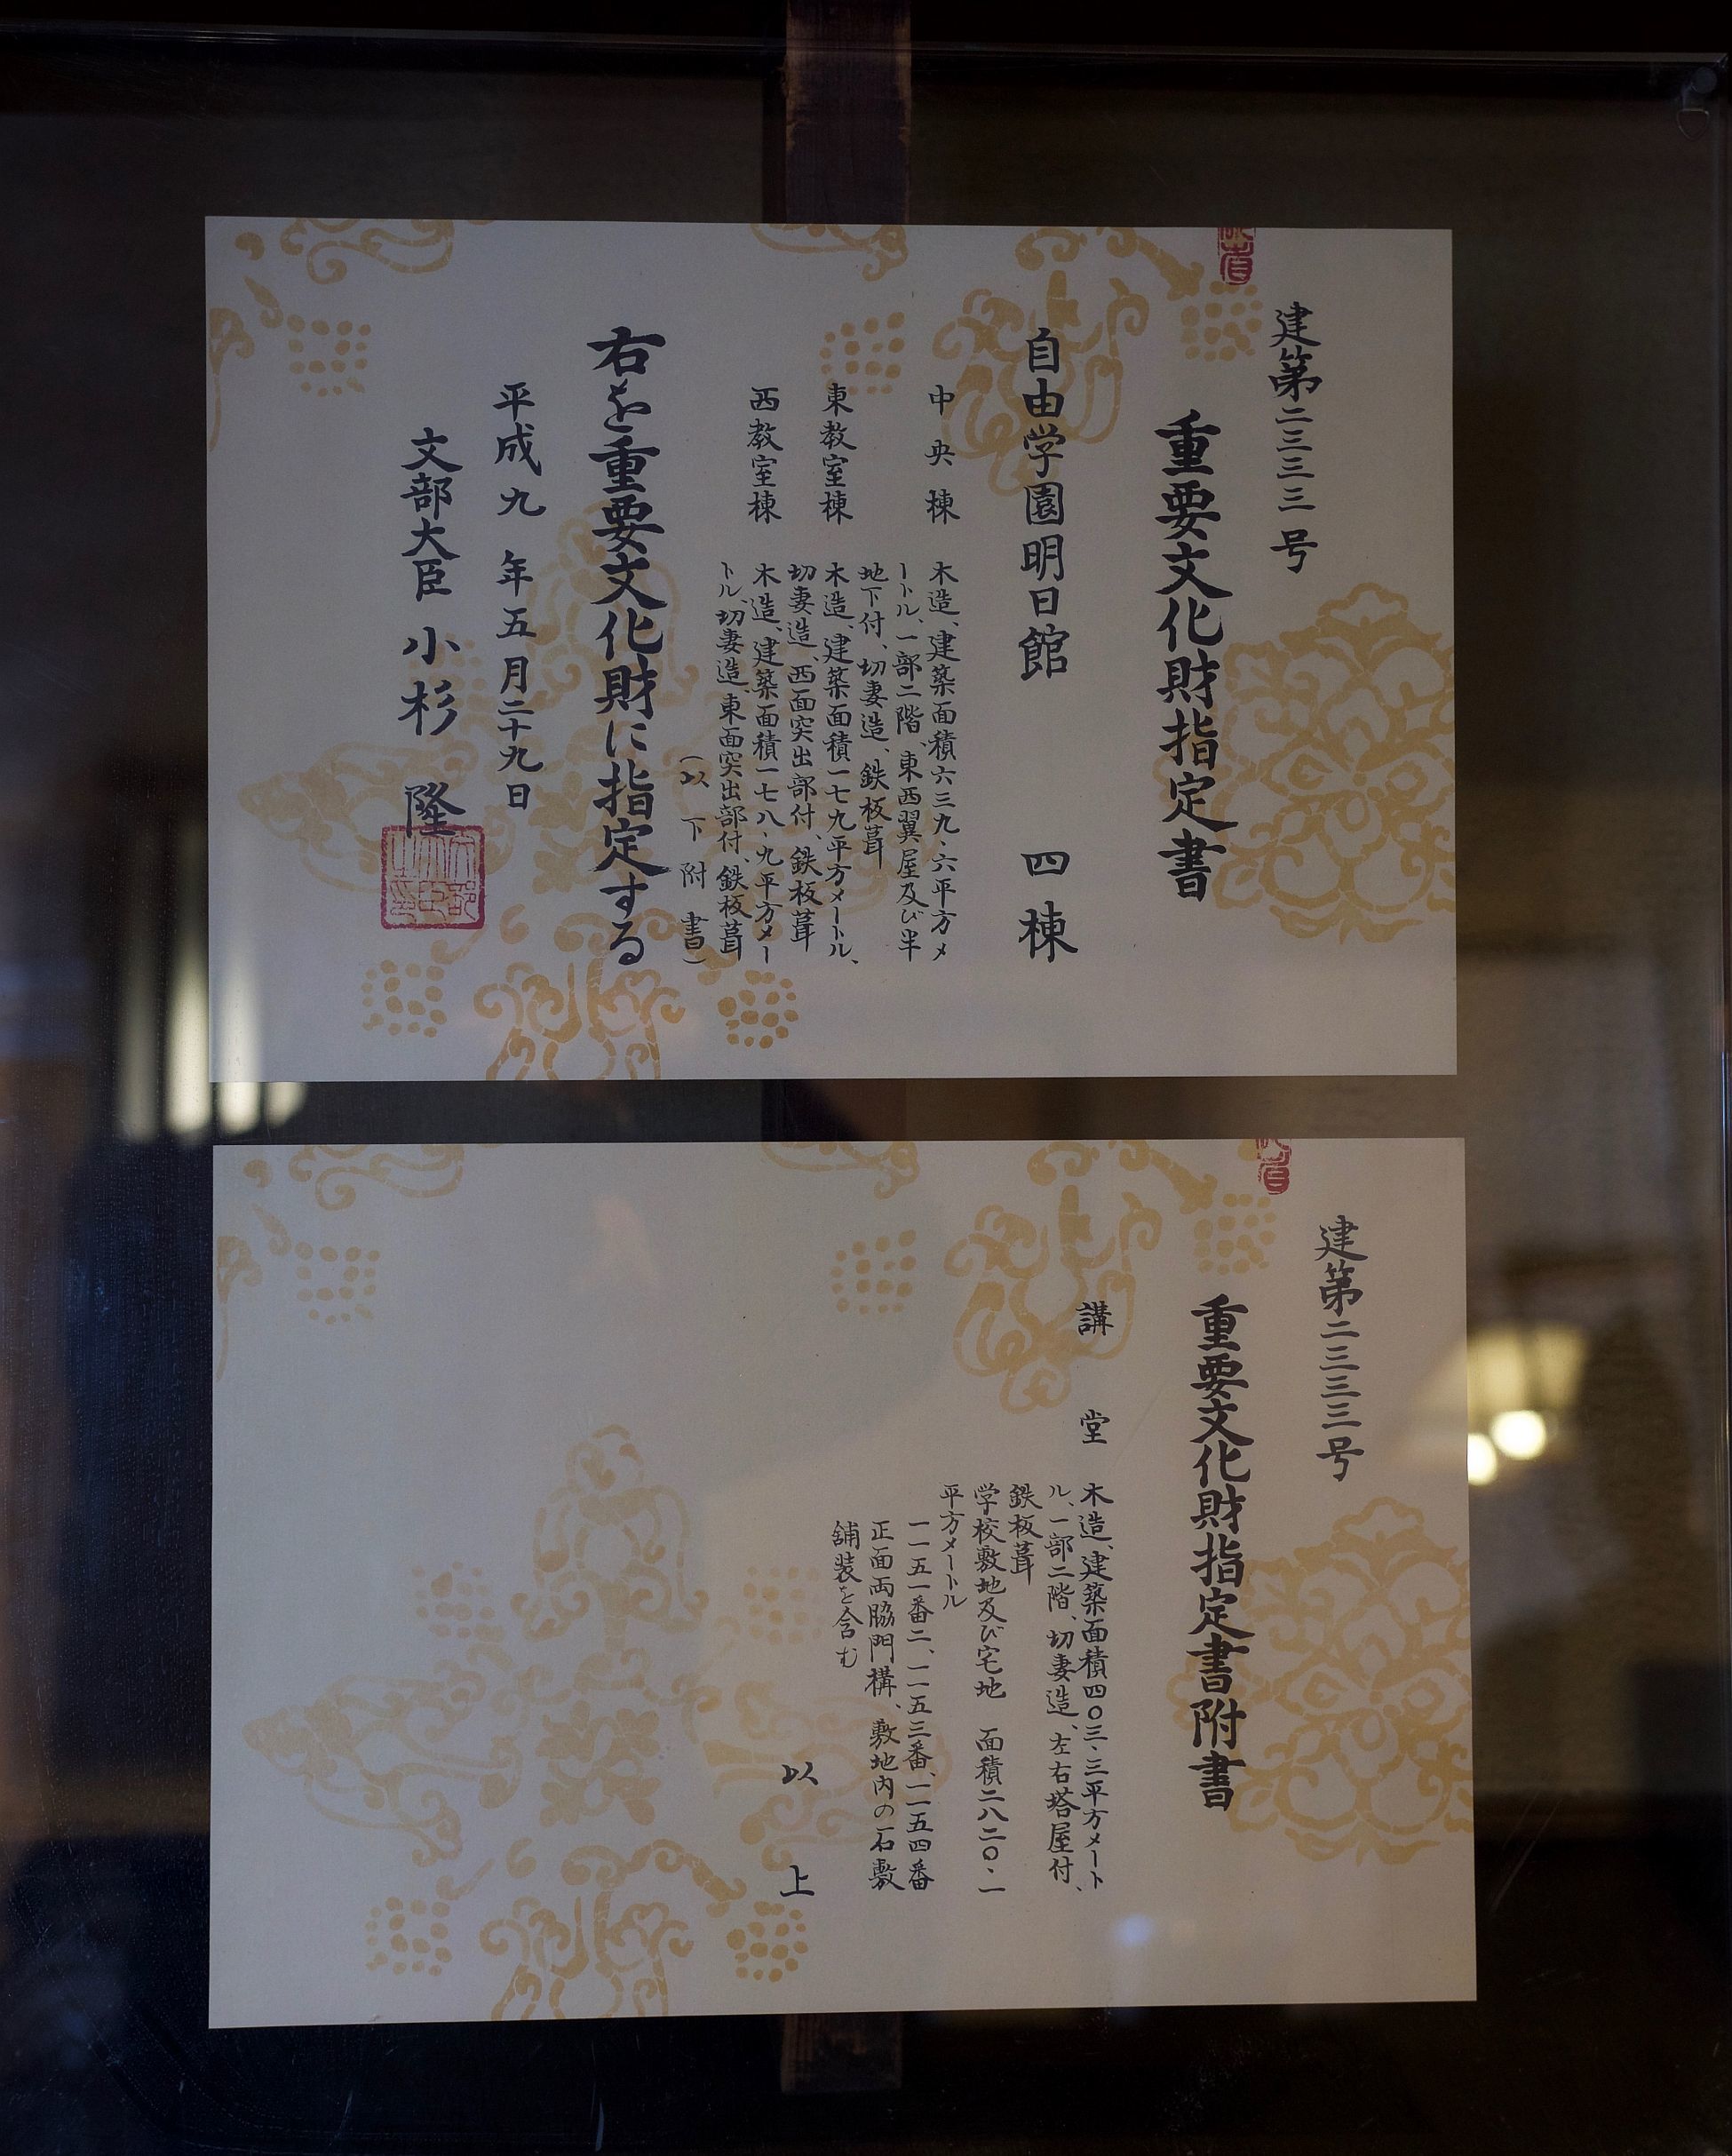 建第二三三三号
重要文化財指定書
自由学園明日館　四棟
中央棟　木造、建築面積六三九・六平方メ
ートル、一部二階、東西翼屋及び半
地下付、切妻造、鉄板葺
東教室棟　木造、建築面積一七九平方メートル、
切妻造、西面突出部付、鉄板葺
西教室棟　木造、建築面積一七八・九平方メー
トル、切妻造、東面突出部付、鉄板葺
（以下附書）
右を重要文化財に指定する
平成九年五月二十九日
文部大臣　小杉　隆
建第二三三三号
重要文化財指定書附書
講堂　木造、建築面積四〇三・三平方メート
ル、一部二階、切妻造、左右塔屋付、
鉄板葺
学校敷地及び宅地　面積二八二〇・一
平方メートル
一一五一番二、一一五三番、一一五四番
正面両脇門構、敷地内の石敷
舗装を含む
以上